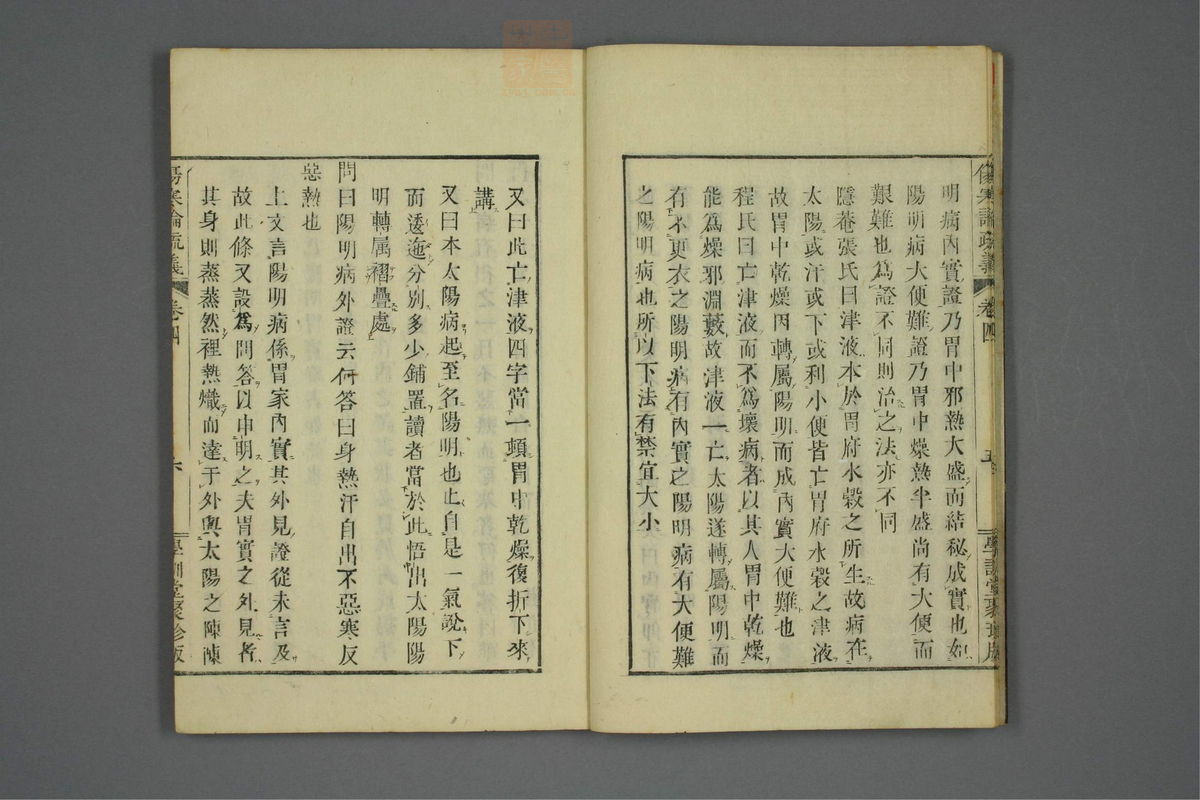 明病內實證乃胃中邪熱大盛而結秘成實也如
陽明病大便難證乃胃中燥熱半盛尚有大便而
艱難也為證不同則治之法亦不同
隱菴張氏曰津液本於胃府水穀之所生故病在
太陽或汗或下或利小便皆亡胃府水穀之津液
故胃中乾燥因轉屬陽明而成內實大便難也
程氏曰亡津液而不為壞病者以其人胃中乾燥
能為燥邪淵藪故津液一亡太陽遂轉屬陽明而
有不更衣之陽明病有內實之陽明病有大便難
之陽明病也所以下法有禁宜大小
傷寒論疏義 卷四 五 學訓堂聚珍版
又曰此亡津液四字當一頓胃中乾燥復折下來
講
又曰本太陽病起至名陽明也止自是一氣說下
而逶迤分別多少鋪置讀者當於此悟出太陽陽
明轉属褶疊處
問曰陽明病外證云何答曰身熱汗自出不惡寒反
惡熱也
上文言陽明病係胃家內實其外見證從未言及
故此條又設為問答以申明之夫胃實之外見者
其身則蒸蒸然裡熱熾而達于外與太陽之陣陣
傷寒論疏義 卷四 六 學訓堂聚珍版